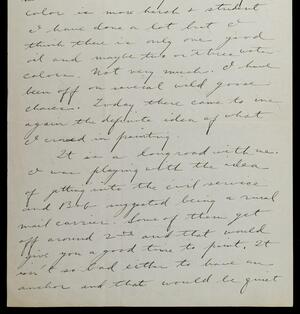 color is more harsh & strident
I have done a lot but I
think there is only one good
oil and maybe two or three water
colors. Not very much. I have
been off on several wild goose
chases. Today there came to me
again the definite idea of what
I in painting.
It is a long road with me.
I was playing with the idea
of getting into the civil service
and Bob suggested being a rural
mail carrier. Some of them get
off around 2nd and that would
give you a good time to paint. It
isn't so bad either to have an
anchor and that would be quiet